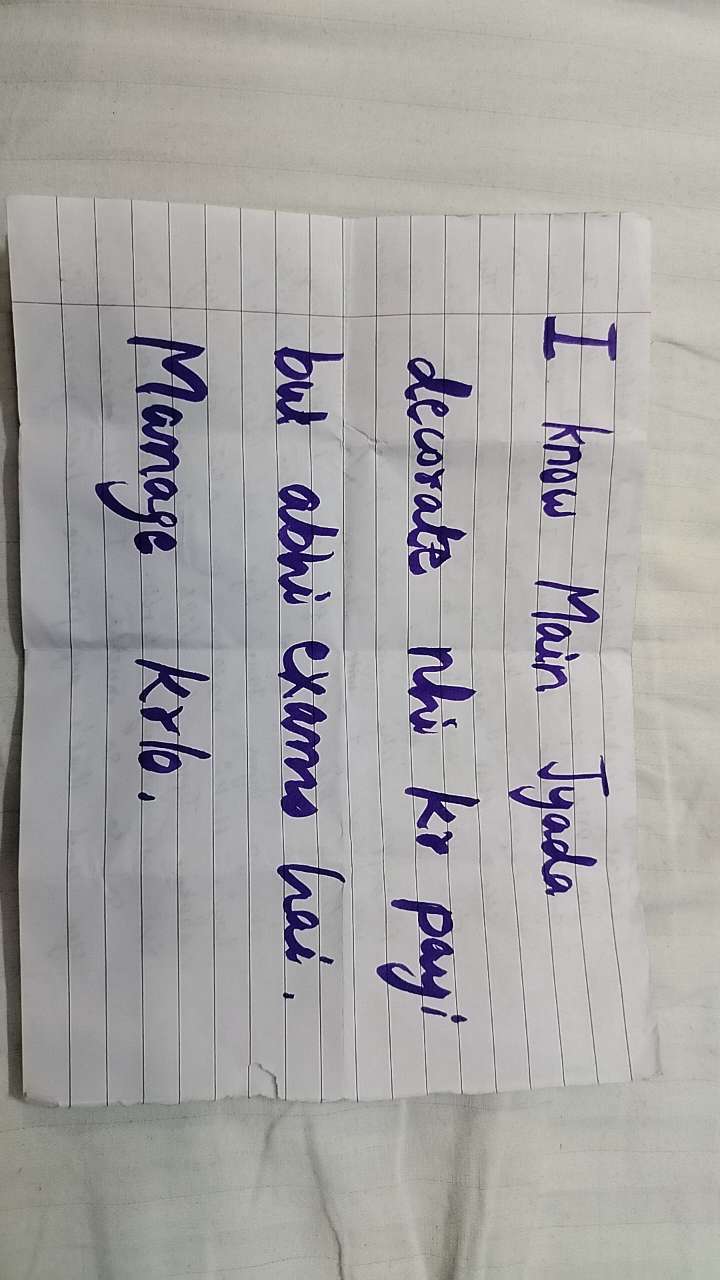 I know Main Jyada
decorate nhi kr payi
but abhi exams hai.
Manage krlo.